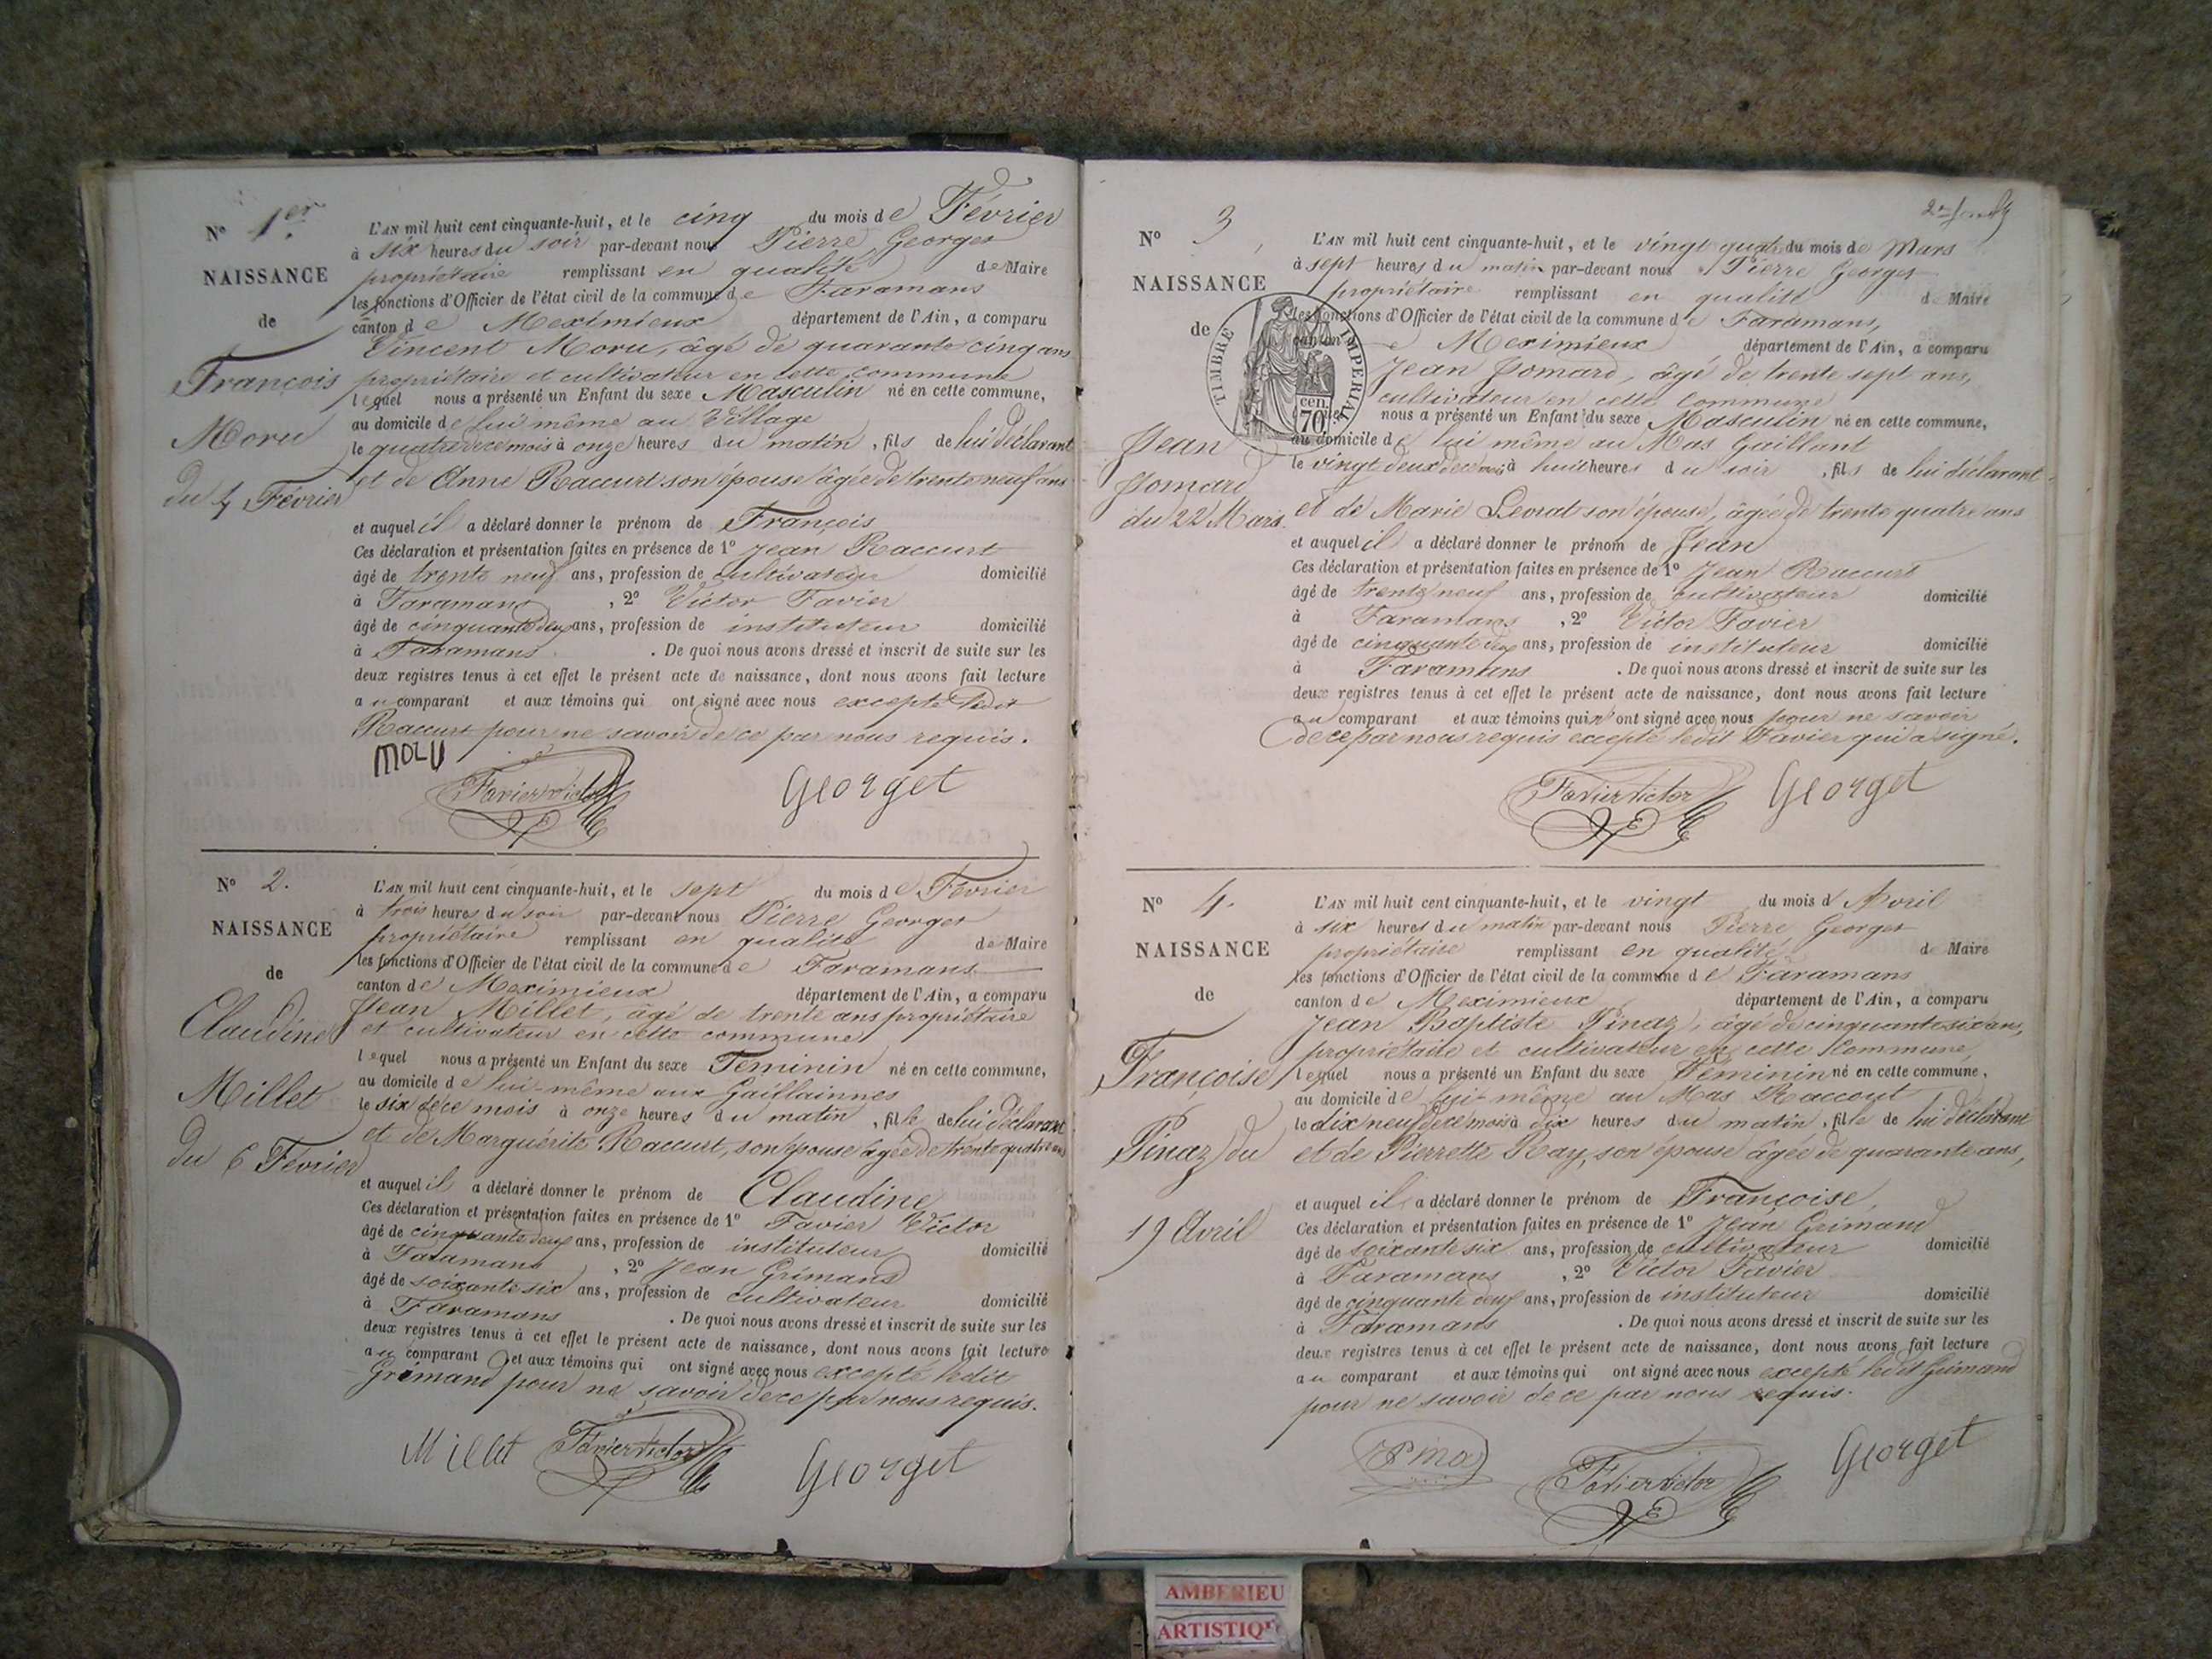 N° 1er
NAISSANCE
de
François
Moru
du 4 Février
L'AN mil huit cent cinquante-huit, et le cinq du mois de Février
à six heures du soir par-devant nous Pierre Georget
propriétaire remplissant en qualité de Maire
les fonctions d'Officier de l'état civil de la commune de Faramans
canton de Meximieux département de l'Ain, a comparu
Vincent Moru, âgé de quarante cinq ans
propriétaire et cultivateur en cette commune
lequel nous a présenté un Enfant du sexe Masculin né en cette commune,
au domicile de lui même au Village
le quatre de ce mois à onze heures du matin, fils de lui déclarant
et de Anne Raccurt son épouse âgée de trente neuf ans
et auquel il a déclaré donner le prénom de François
Ces déclaration et présentation faites en présence de 1° Jean Raccurt
âgé de trente neuf ans, profession de cultivateur domicilié
à Faramans, 2° Victor Favier
âgé de cinquante deux ans, profession de instituteur domicilié
à Faramans. De quoi nous avons dressé et inscrit de suite sur les
deux registres tenus à cet effet le présent acte de naissance, dont nous avons fait lecture
au comparant et aux témoins qui ont signé avec nous excepté ledit
Raccurt pour ne savoir de ce par nous requis.
MOLU
Favier Victor Georget
N° 2.
NAISSANCE
de
Claudine
Millet
du 6 Février
L'AN mil huit cent cinquante-huit, et le sept du mois de Février
à trois heures du soir par-devant nous Pierre Georget
propriétaire remplissant en qualité de Maire
les fonctions d'Officier de l'état civil de la commune de Faramans
canton de Meximieux département de l'Ain, a comparu
Jean Millet, âgé de trente ans propriétaire
et cultivateur en cette commune
lequel nous a présenté un Enfant du sexe Féminin né en cette commune,
au domicile de lui-même aux Gaillainnes
le six de ce mois à onze heures du matin, fille de lui déclarant
et de Marguérite Raccurt, son épouse âgée de trente quatre ans
et auquel il a déclaré donner le prénom de Claudine
Ces déclaration et présentation faites en présence de 1° Favier Victor
âgé de cinquante deux ans, profession de instituteur domicilié
à Faramans, 2° Jean Grimand
âgé de soixante six ans, profession de cultivateur domicilié
à Faramans. De quoi nous avons dressé et inscrit de suite sur les
deux registres tenus à cet effet le présent acte de naissance, dont nous avons fait lecture
au comparant et aux témoins qui ont signé avec nous excepté ledit
Grimand pour ne savoir de ce par nous requis.
Millet Favier Victor Georget
N° 3
NAISSANCE
de
TIMBRE IMPERIAL
cen. 70
Jean
Jomard
du 22 Mars
L'AN mil huit cent cinquante-huit, et le vingt quatre du mois de Mars
à sept heures du matin par-devant nous Pierre Georget
propriétaire remplissant en qualité de Maire
les fonctions d'Officier de l'état civil de la commune de Faramans,
canton de Meximieux département de l'Ain, a comparu
Jean Jomard, âgé de trente sept ans,
cultivateur en cette commune
nous a présenté un Enfant du sexe Masculin né en cette commune,
au domicile de lui même au Mas Gaillant
le vingt deux de ce mois à huit heures du soir, fils de lui déclarant
et de Marie Levrat son épouse, âgée de trente quatre ans
et auquel il a déclaré donner le prénom de Jean
Ces déclaration et présentation faites en présence de 1° Jean Raccurt
âgé de trente neuf ans, profession de cultivateur domicilié
à Faramans, 2° Victor Favier
âgé de cinquante deux ans, profession de instituteur domicilié
à Faramans. De quoi nous avons dressé et inscrit de suite sur les
deux registres tenus à cet effet le présent acte de naissance, dont nous avons fait lecture
au comparant et aux témoins qui n'ont signé avec nous pour ne savoir
de ce par nous requis excepté ledit Favier qui a signé.
Favier Victor Georget
N° 4.
NAISSANCE
de
Françoise
Pinaz du
19 Avril
L'AN mil huit cent cinquante-huit, et le vingt du mois d'Avril
à six heures du matin par-devant nous Pierre Georget
propriétaire remplissant en qualité de Maire
les fonctions d'Officier de l'état civil de la commune de Faramans
canton de Meximieux département de l'Ain, a comparu
Jean Baptiste Pinaz, âgé de cinquante six ans,
propriétaire et cultivateur en cette Commune,
lequel nous a présenté un Enfant du sexe Féminin né en cette commune,
au domicile de lui-même au Mas Raccout
le dix neuf de ce mois à dix heures du matin, fille de lui déclarant
et de Pierrette Ray, son épouse âgée de quarante ans,
et auquel il a déclaré donner le prénom de Françoise,
Ces déclaration et présentation faites en présence de 1° Jean Grimand
âgé de soixante six ans, profession de cultivateur domicilié
à Faramans, 2° Victor Favier
âgé de cinquante deux ans, profession de instituteur domicilié
à Faramans. De quoi nous avons dressé et inscrit de suite sur les
deux registres tenus à cet effet le présent acte de naissance, dont nous avons fait lecture
au comparant et aux témoins qui ont signé avec nous excepté ledit Grimand
pour ne savoir de ce par nous requis.
Favier Victor Georget
AMBERIEU
ARTISTIQUE